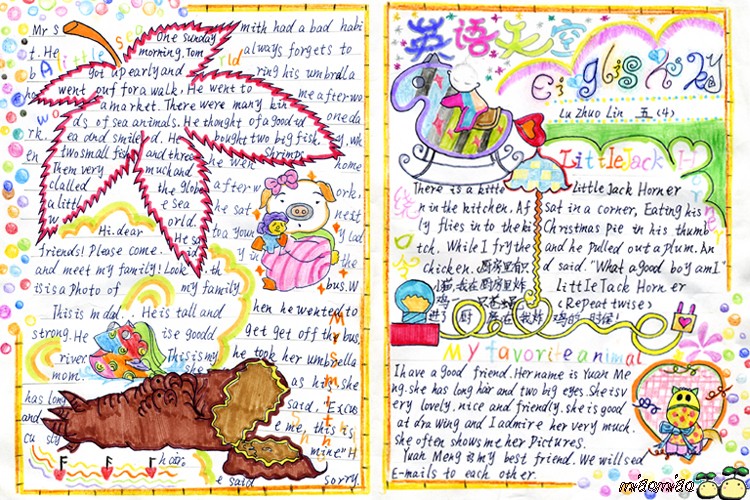 Mr S
mith had a bad habi
t. He
always forgets to
b
ring his umbrella
me after wo
rk.
one da
y, wh
en
he wen
home
after w
ork,
he sat
next
to a youn
g lady
in
bus. W
hen he wanted to
get off the bus,
he took her umbrella
as his, she
said, "Excus
e me, this is
mine" H
e said
sorry.
One sunday
morning, Tom
got up early and
went out for a walk. He went to
a market. There were many kin
ds of sea animals. He thought of a good id
ea and smiled. He bought two big fish,
two small fish and three Shrimps.
Them very much and
called the globe
a little sea
world.
A little sea world
Hi. dear
friends! Please come.
and meet my family! Look
is is a photo of my family
This is m dad. He is tall and
strong. He is a good
river
This is my
mom. she
has long
and
hair.
Mr Smith
英语天空
English 刘
Lu Zhuo Lin 五(4)
Little Jack Horner
Little Jack Horner
sat in a corner, Eating his
Christmas Pie in his thumb
and he pulled out a plum. An
d said. "What a good boy am I"
little Tack Horner
(Repeat twise)
There is a kitte
n in the kitchen. Af
ly flies in to the ki
tch. While I fry the
chicken.
My favorite animal
I have a good friend. Her name is Yuan Me
ng. she has long hair and two big eyes. She is v
ery lovely. nice and friendly. she is good
at drawing and I admire her very much.
She often shows me her Pictures.
Yuan Meng is my best friend. We will sed
E-mails to each other.
miaomiao